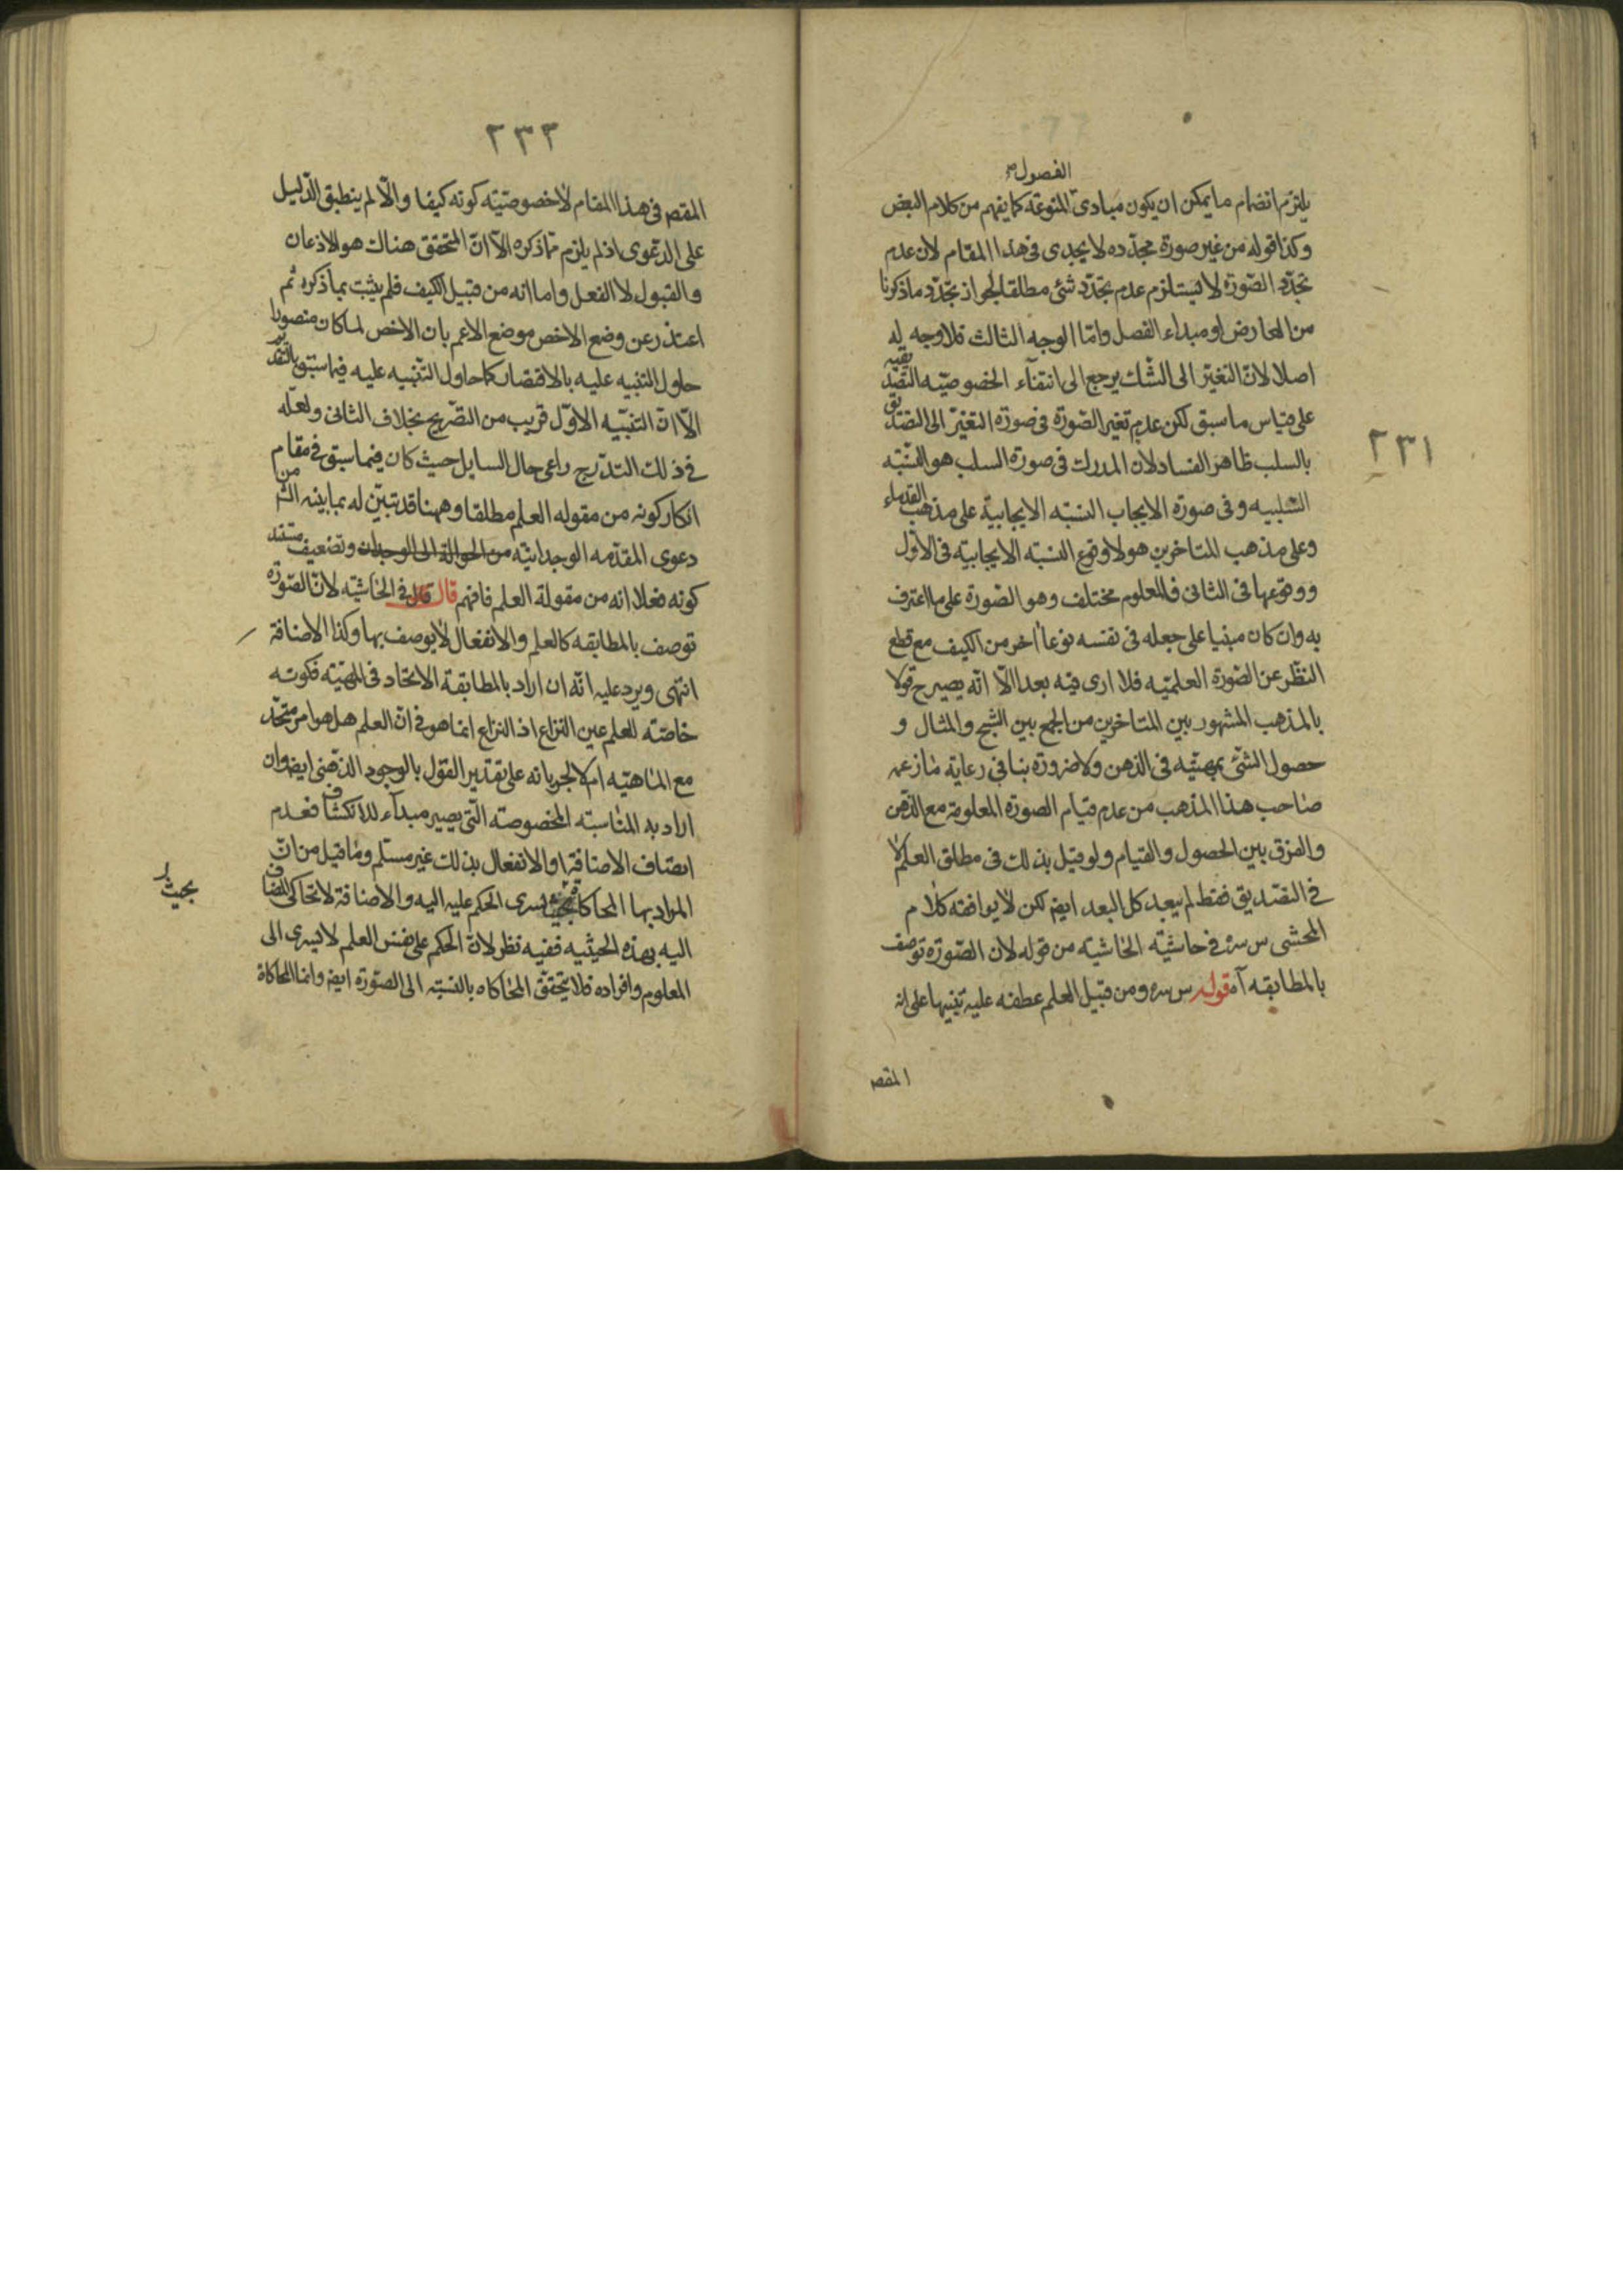 الفصول
يلتزم انضمام ما يمكن ان يكون مبادى المنوعة كما يفهم من كلام البعض
وكذا قوله من غير صورة مجدده لا يجدى فى هذا المقام لان عدم
تجدد الصورة لا يستلزم عدم تجدد شئ مطلقا لجواز تجدد ما ذكرنا
من العارض او مبداء الفصل واما الوجه الثالث فلا وجه له
اصلا لان التغير الى الشك يرجع الى انتفاء الخصوصيه
على قياس ما سبق لكن عدم تغير الصورة فى صورة التغير الى التصديق
٢٣١
بالسلب ظاهر الفساد لان المدرك فى صورة السلب هو النسبه
السلبيه وفى صورة الايجاب النسبه الايجابية على مذهب القدماء
وعلى مذهب المتاخرين هو لا وقوع النسبه الايجابيه فى الاول
ووقوعها فى الثانى فالمعلوم مختلف وهو الصورة على ما اعترف
به وان كان مبنيا على جعله فى نفسه نوعا اخر من الكيف مع قطع
النظر عن الصورة العلميه فلا ارى فيه بعدا الا انه يصير ح قولا
بالمذهب المشهور بين المتاخرين من الجمع بين الشبح والمثال و
حصول الشئ بمهيته فى الذهن ولا ضرورة بنا فى رعاية ما زعمه
صاحب هذا المذهب من عدم قيام الصورة المعلومة مع الذهن
والفرق بين الحصول والقيام ولو قيل بذلك فى مطلق العلم لا
فى التصديق فقط لم يبعد كل البعد ايض لكن لا يوافقه كلام
المحشى س سره فى حاشية الحاشيه من قوله لان الصورة توصف
بالمطابقه آه قوله س سره ومن قبيل العلم عطفه عليه تنبيها على ان
المقص
٢٣٣
المقص فى هذا المقام لا خصوصيته كونه كيفا والا لم ينطبق الدليل
على الدعوى اذ لم يلزم مما ذكره الا ان المتحقق هناك هو الاذعان
والقبول لا الفعل واما انه من قبيل الكيف فلم يثبت بما ذكره ثم
اعتذر عن وضع الاخص موضع الاعم بان الاخص لما كان منصوبا
حاول التنبيه عليه بالاقتصار كما حاول التنبيه عليه فيما سبق
الا ان التنبيه الاول قريب من التصريح بخلاف الثانى ولعله
فى ذلك التدرج راعى حال السايل حيث كان فيما سبق فى مقام
انكار كونه من مقوله العلم مطلقا وههنا قد تبين له مباينه من
دعوى المقدمه الوجدانيه من الحوالة الى الوجدان وتضعيف مستند
كونه فعلا انه من مقولة العلم فافهم قال قال فى الحاشيه لان الصورة
توصف بالمطابقه كالعلم والانفعال لا يوصف بها وكذا الاضافة
انتهى ويرد عليه انه ان اراد بالمطابقة الاتحاد فى المهيته فكونه
خاصة للعلم عين النزاع اذ النزاع انما هو فى ان العلم هل هو امر متحد
مع الماهيه ام لا لجريانه على تقدير القول بالوجود الذهنى ايض وان
اراد به المناسبته المخصوصته التى يصير مبداء للانكشاف فعدم
اتصاف الاضافة او الانفعال بذلك غير مستلم وما قيل من ان
المراد بها المحاكاة يسرى الحكم عليه اليه والاضافة لا تحاكى المضاف
بحيث
اليه بهذه الحيثيه ففيه نظر لان الحكم على نفس العلم لا يسرى الى
المعلوم وافراده فلا يتحقق المحاكاه بالنسبته الى الصورة ايض وانما المحاكاة